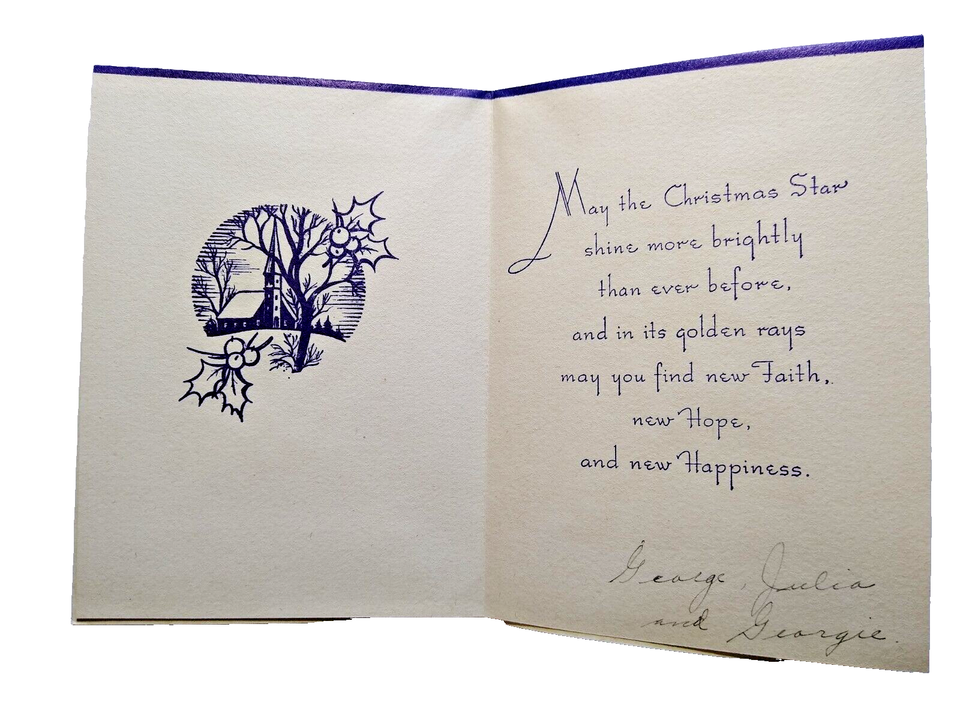 May the Christmas Star
shine more brightly
than ever before,
and in its golden rays
may you find new Faith,
new Hope,
and new Happiness.
George, Julia
and Georgie.